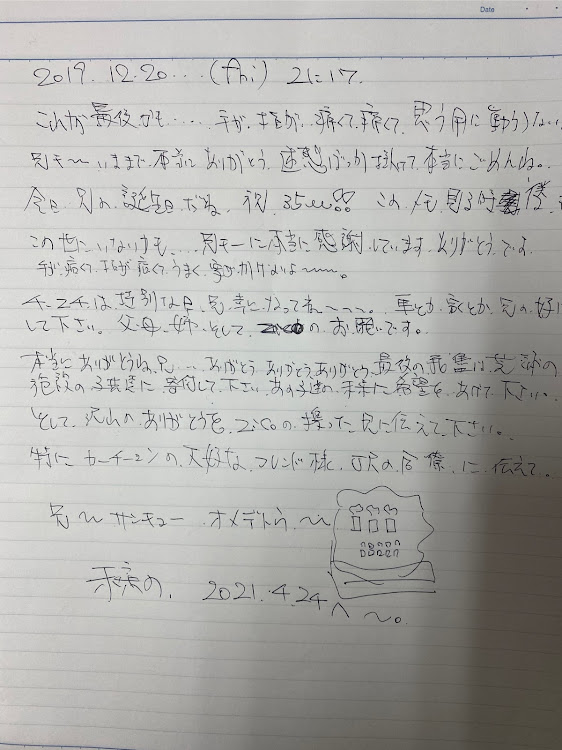 Date
2019.12.20...(fri) 21:17.
これが最後かも......手が、指が、痛くて痛くて、思う用に動う)ない
兄モー〜いままで、本当にありがとう、迷惑ばっか掛けて、本当にごめんね。
今日、兄の誕生日だね、祝、35 この〆モ、見る時 僕
この世にいないかも...兄モーに本当に感謝しています、ありがとうです
手が、痛くて、指が、痛くて、うまく、字が、かけないよ〜。
4.24は、特別な日、兄、幸になってね〜。車とか、家とか、兄の好
して下さい。父、母、姉、そして、 のお願いです。
本当にありがとうね、兄...ありがとう、ありがとう、ありがとう、最後の は、 の
施設の子供達に、寄付して下さい、あの子達の、未来に、希望を、あげて下さい。
そして、沢山の、ありがとうを、zicoの、 兄に伝えて下さい。
特に、カーチーマンの、大好な、フレンド様、 の、 に、伝えて。
兄〜サンキュー オメデトウ〜
の、2021.4.24へ〜。